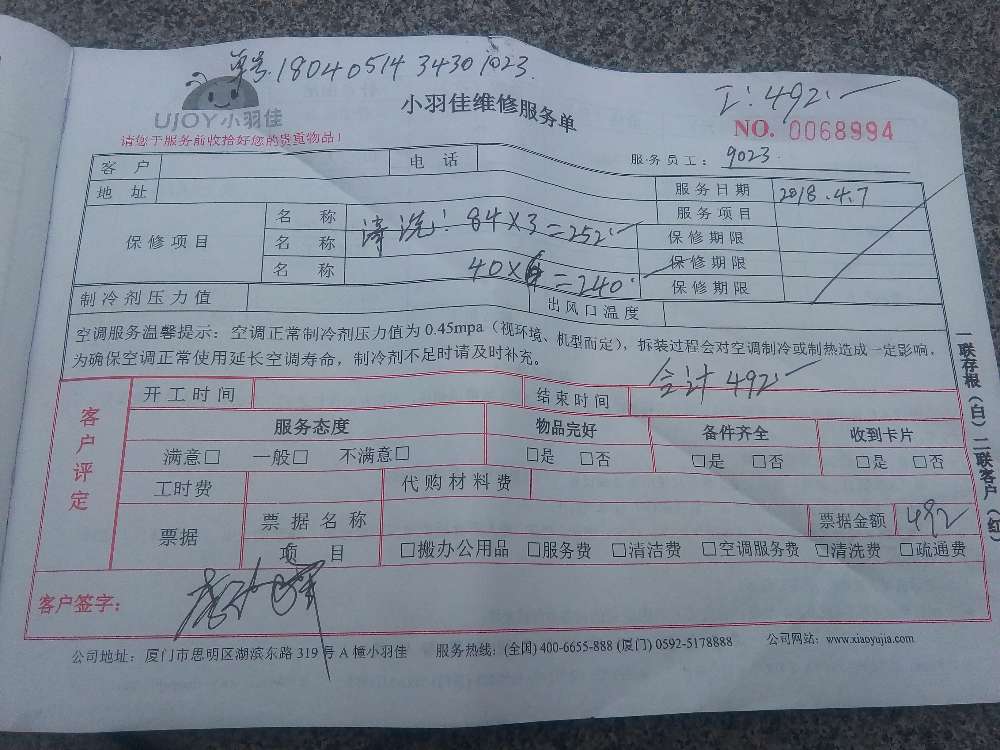 单号18040514 34301023.
工:492.-
UJOY小羽佳
小羽佳维修服务单
NO. 0068994
请您于服务前收拾好您的贵重物品!
服务员工: 9023
客 户 电 话
地 址 服务日期 2018.4.7
保修项目 名 称 清洗: 84×3=252.- 服务项目
名 称 保修期限
名 称 40×6=240. 保修期限
保修期限
制冷剂压力值 出风口温度
空调服务温馨提示: 空调正常制冷剂压力值为 0.45mpa (视环境、机型而定), 拆装过程会对空调制冷或制热造成一定影响,
为确保空调正常使用延长空调寿命, 制冷剂不足时请及时补充。
合计 492.-
客户评定
开工时间 结束时间
服务态度 物品完好 备件齐全 收到卡片
满意□ 一般□ 不满意□ □是 □否 □是 □否 □是 □否
工时费 代购材料费
票据 票据名称 票据金额 492
项 目 □搬办公用品 □服务费 □清洁费 □空调服务费 □清洗费 □疏通费
客户签字:
公司地址: 厦门市思明区湖滨东路 319 号 A 幢小羽佳 服务热线: (全国) 400-6655-888 (厦门) 0592-5178888 公司网站: www.xiaoyujia.com
一联存根(白) 二联客户(红)